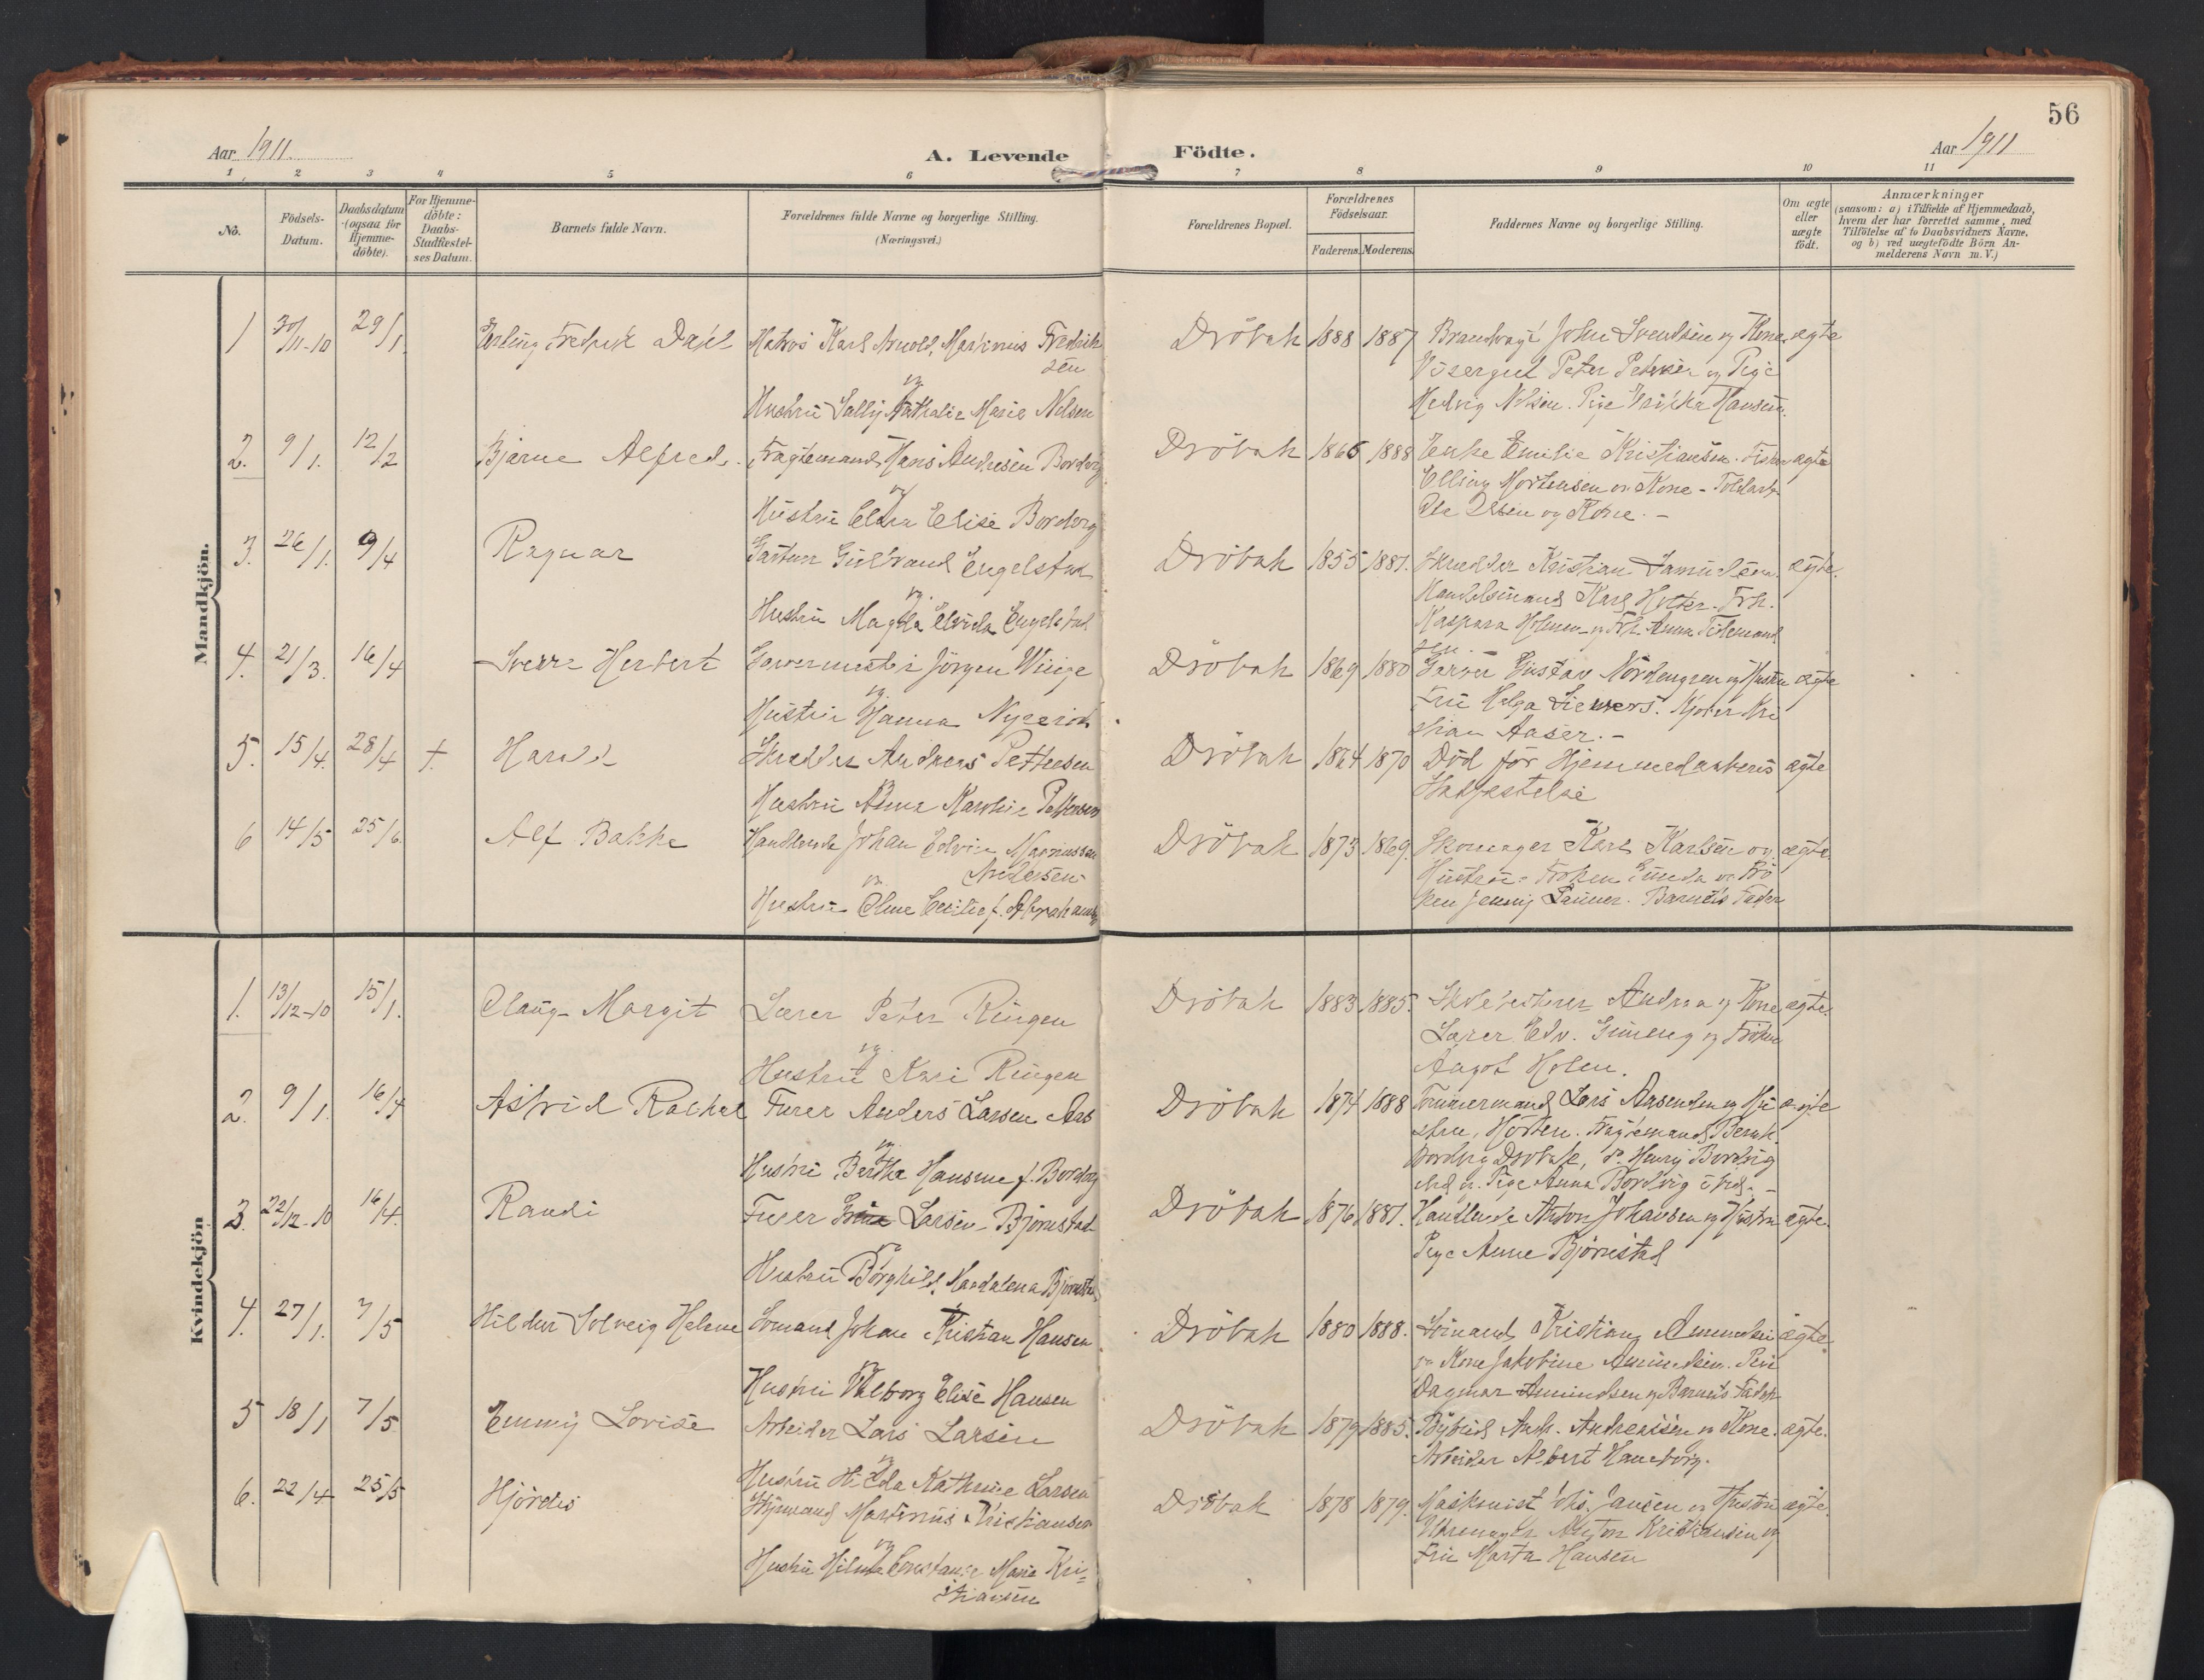 56
Aar 1911.
A. Levende Födte.
Aar 1911
1 2 3 4 5 6 7 8 9 10 11
No.
Födsels-
Datum.
Daabsdatum
(ogsaa for
Hjemme-
döbte).
For Hjemme-
döbte:
Daabs-
Stadfæstel-
ses Datum.
Barnets fulde Navn.
Forældrenes fulde Navne og borgerlige Stilling.
(Næringsvei.)
Forældrenes Bopæl.
Forældrenes
Födselsaar.
Faderens. Moderens.
Faddernes Navne og borgerlige Stilling.
Om ægte
eller
uægte
födt.
Anmærkninger
(saasom: a) i Tilfælde af Hjemmedaab,
hvem der har forrettet samme, med
Tilföielse af to Daabsvidners Navne,
og b) ved uægtefödte Börn An-
melderens Navn m. V.)
Mandkjön.
1 30/11-10 29/1. Erling Fredrik Matros Karl Arnold Marinius Fredrik
sen
og
Hustru Sally Nathalie Marie Nelsen
Dröbak 1888 1887 John Svendsen og Kone ægte
Visergut Peter og Pige
Hedvig Nilsen. Pige Hansen.
2. 9/1. 12/2 Bjarne Alfred. Fragtemand Hans Andresen Bordvig
og
Hustru Elise Bordvig
Dröbak 1865 1888 Enke Emilie Kristiansen. Fisker ægte
Elling Mortensen og Kone -
Ole Olsen og Kone. -
3. 26/1. 9/4 Ragnar Gartner Gulbrand Engelstad
og
Hustru Magda Elvida Engelstad
Dröbak 1855 1881. Skredder Kristian Samuelsen. ægte.
Handelsmand Karl Holter. Frk.
Kaspara Holmen og Frk. Anna Tidemand
sen. -
4. 21/3. 16/4 Sverre Herbert Garvermester Jörgen Winge
og
Hustru Hanna Nygaard
Dröbak 1869 1880 Garver Gustav Nordengren og Hustru ægte
Fru Helga Siewers. Kri
stian Aaser. -
5. 15/4. 28/4 †. Harald Skredder Andreas Pettersen
og
Hustru Anna Karoline Pettersen
Dröbak 1864 1870 Död för Hjemmedaabens ægte
Stadfæstelse
6 14/5 25/6 Alf Bakke Handlende Johan Edvin Magnussen
Andersen
og
Hustru Oline Cecilie f. Abrahamsen
Dröbak 1873 1869. Skomager Karl Karlsen og ægte.
Hustru. Fröken og Frö
ken Jenny Barnets Fader
Kvindekjön
1. 13/12-10 15/1. Olaug Margit Lærer Peter Ringen
og
Hustru Kari Ringen
Dröbak 1883 1885. Skolebestyrer Andraa og Kone ægte.
Lærer Edv. og Fröken
Aagot Holen.
2. 9/1. 16/4 Astrid Rakhel Furer Anders Larsen Aas
og
Hustru Bertha Hansine f. Bordvig
Dröbak 1874 1888 Tömmermand Lars Aasenden og Hu ægte
stru, Horten. Fragtemand Bernh.
Bordvig Dröbak, do. Henry Bordvig
og Pige Anna Bordvig -
3. 22/12-10 16/4. Randi Furer Larsen Björnstad
og
Hustru Borghild Magdalena Björnstad
Dröbak 1876 1881. Handlende Anton Johansen og Hustru ægte.
Pige Anne Björnstad
4. 27/1. 7/5 Hildur Solveig Helene Sömand Johan Kristian Hansen
og
Hustru Valborg Elise Hansen
Dröbak 1880 1888. Sömand Kristian Amundsen ægte.
og Kone Jakobine Amundsen. Pige
Dagmar Amundsen og Barnets Fader
5 18/1 7/5 Emmy Lovise Arbeider Lars Larsen
og
Hustru Hilda Kathrine Larsen
Dröbak 1879 1885. Bybud Andr. Andreassen og Kone. ægte.
Arbeider Albert Haneborg.
6. 22/4 25/5 Hjördis Styrmand Martinius Kristiansen
og
Hustru Hilma Constance Marie Kri=
stiansen
Dröbak 1878 1879. Maskinist Joh. Jansen og Hustru ægte.
Uhrmager Anton Kristiansen og
Fru Marta Hansen